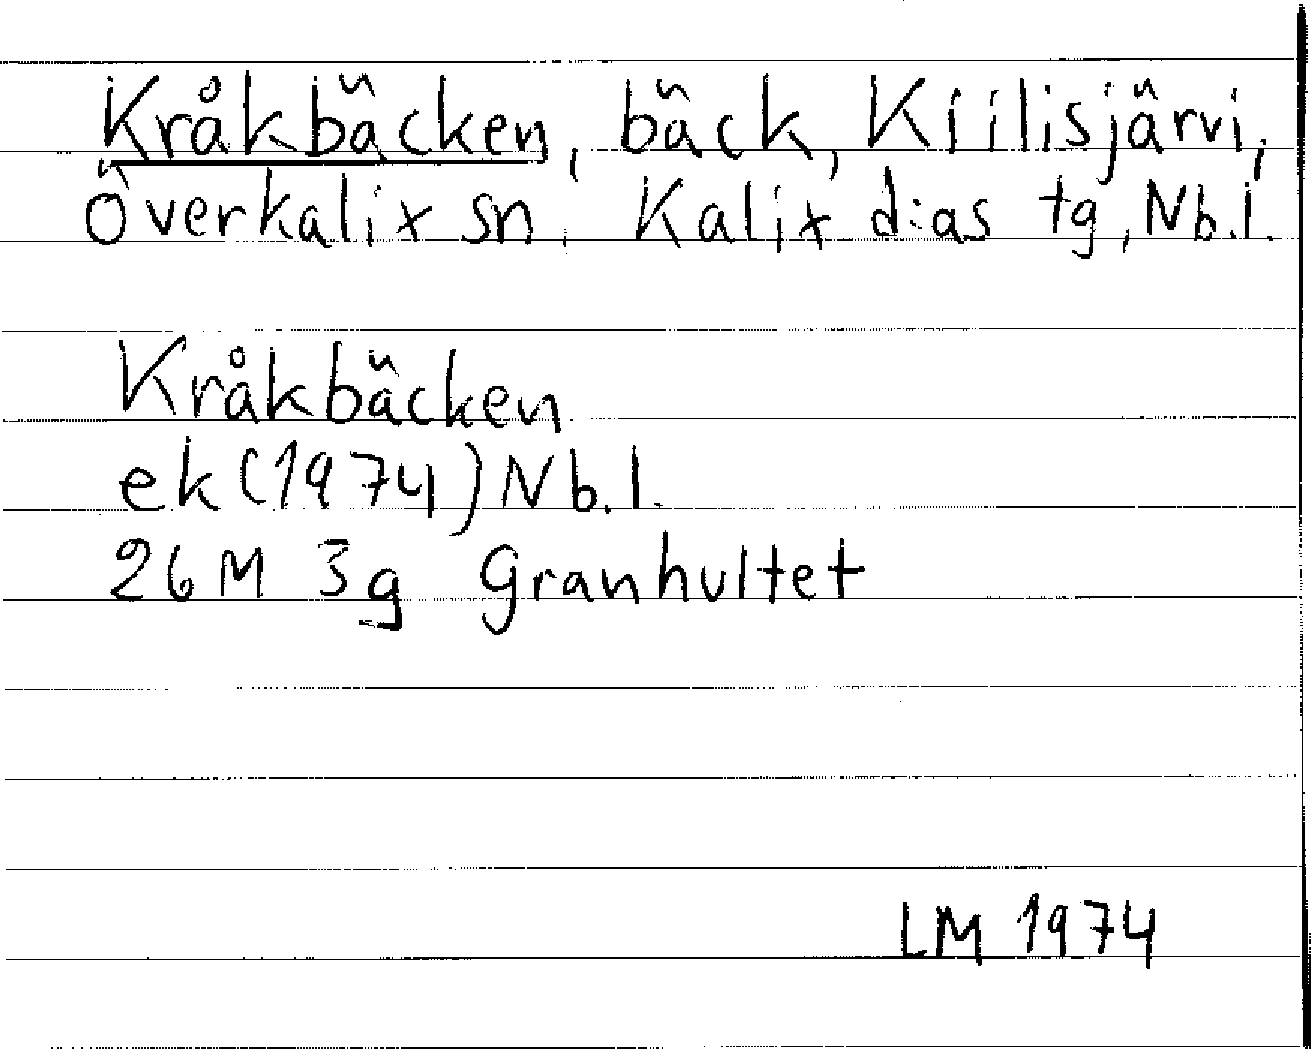 Kråkbäcken, bäck, Kiilisjärvi,
Överkalix sn, Kalix d:as tg, Nb.l.
Kråkbäcken
ek (1974) Nb.l.
26 M 3g Granhultet
LM 1974